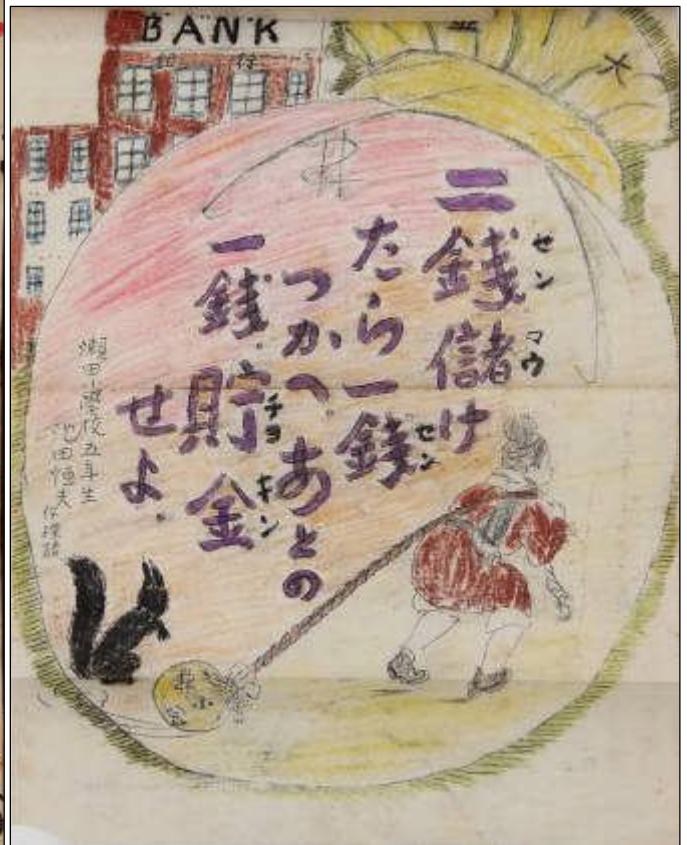 BANK
銀行
二銭儲け
たら一銭
つかへ。あとの
一銭貯金
せよ。
セン
マウ
セン
チヨ
キン
瀬田小学校五年生
池田恒夫